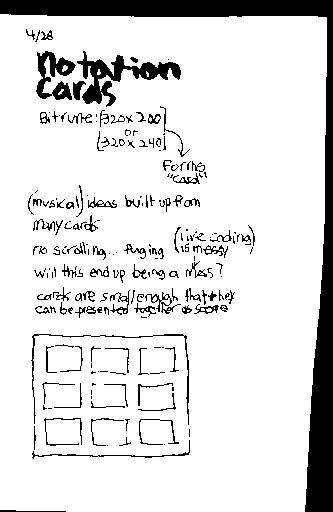 4/28
notation
cards
Bitrune: [320x200]
or
[320x240]
Forms
"card"
(musical) ideas built up from
many cards
(live coding)
no scrolling... Paging is messy
will this end up being a mess?
cards are small enough that they
can be presented together as score